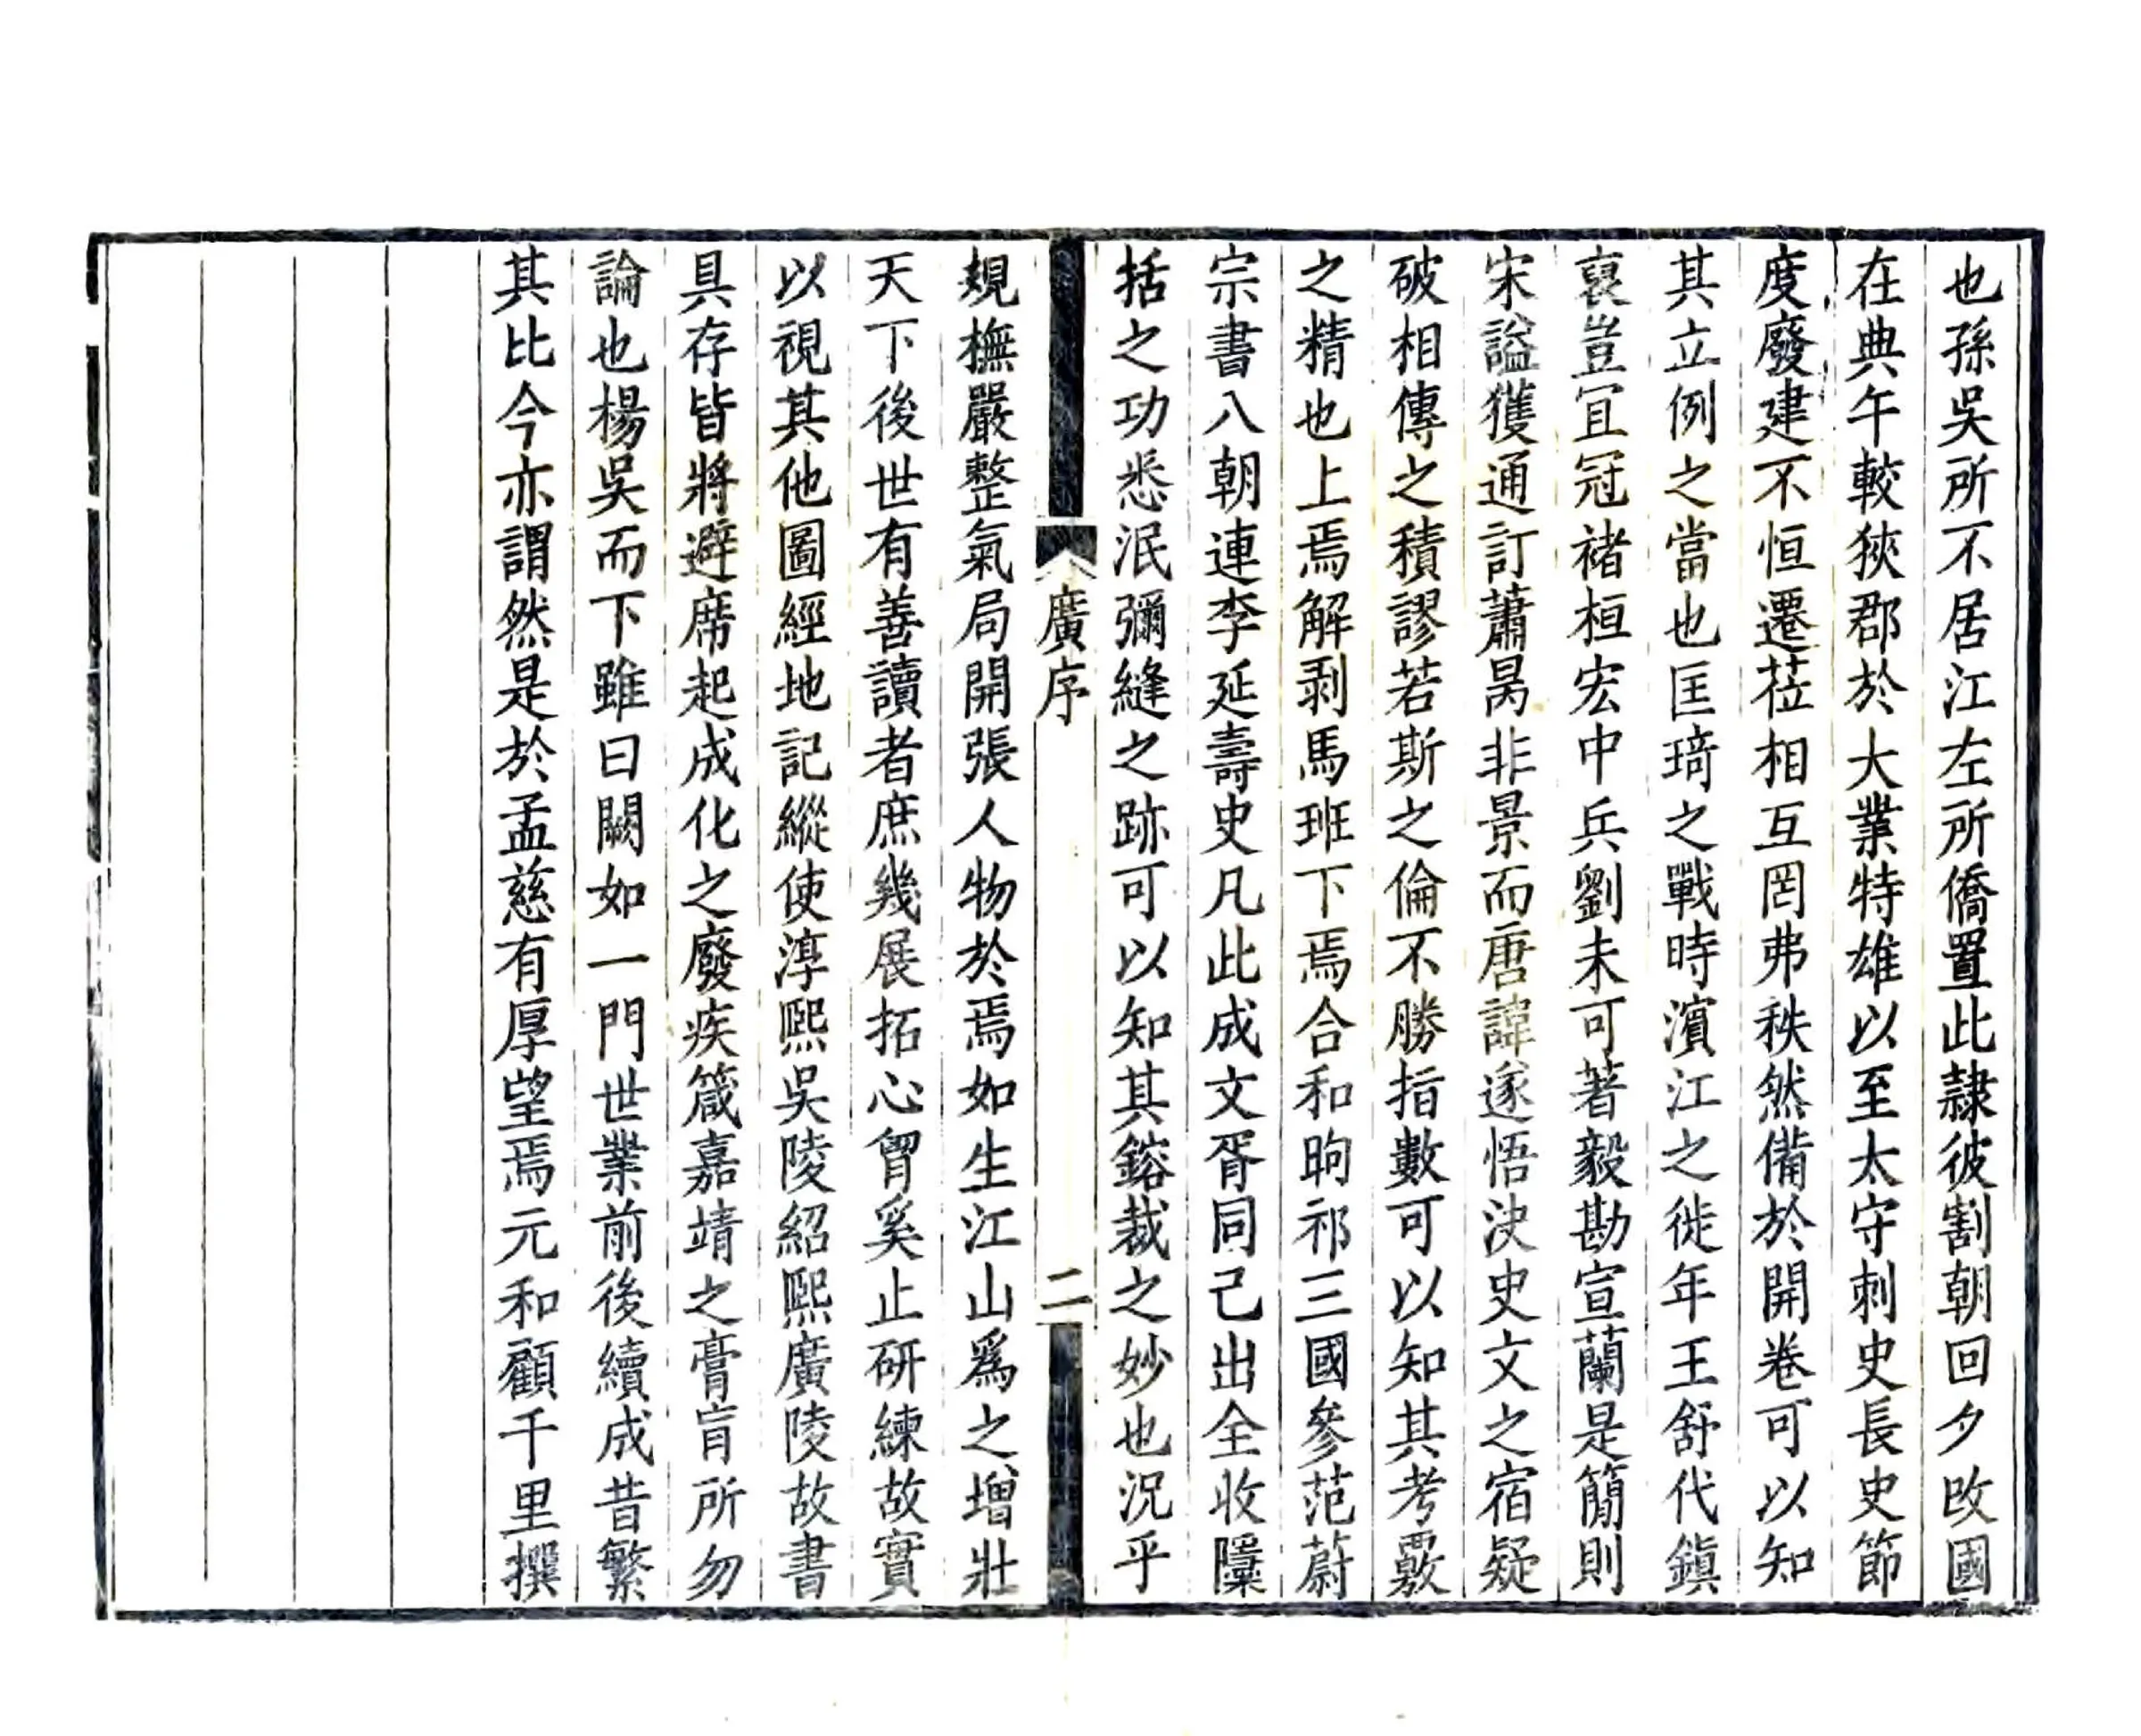 也孫吳所不居江左所僑置此隷彼割朝回夕改國
在典午較狹郡於大業特雄以至太守刺史長史節
度廢建不恒遷莅相互罔弗秩然備於開卷可以知
其立例之當也匡琦之戰時濱江之徙年王舒代鎭
裒豈冝冠褚桓宏中兵劉未可著毅勘宣蘭是簡則
宋謚獲通訂蕭昺非景而唐諱遂悟决史文之宿疑
破相傳之積謬若斯之倫不勝指數可以知其考覈
之精也上焉解剥馬班下焉合和昫祁三國參范蔚
宗書八朝連李延壽史凡此成文胥同己出全收隱
括之功悉泯彌縫之跡可以知其鎔裁之妙也況乎
廣序
二
規橅嚴整氣局開張人物於焉如生江山爲之增壯
天下後世有善讀者庶幾展拓心胷奚止研練故實
以視其他圖經地記縱使淳熙吳陵紹熙廣陵故書
具存皆將避席起成化之廢疾箴嘉靖之膏肓所勿
論也楊吳而下雖曰闕如一門世業前後續成昔繁
其比今亦謂然是於孟慈有厚望焉元和顧千里撰